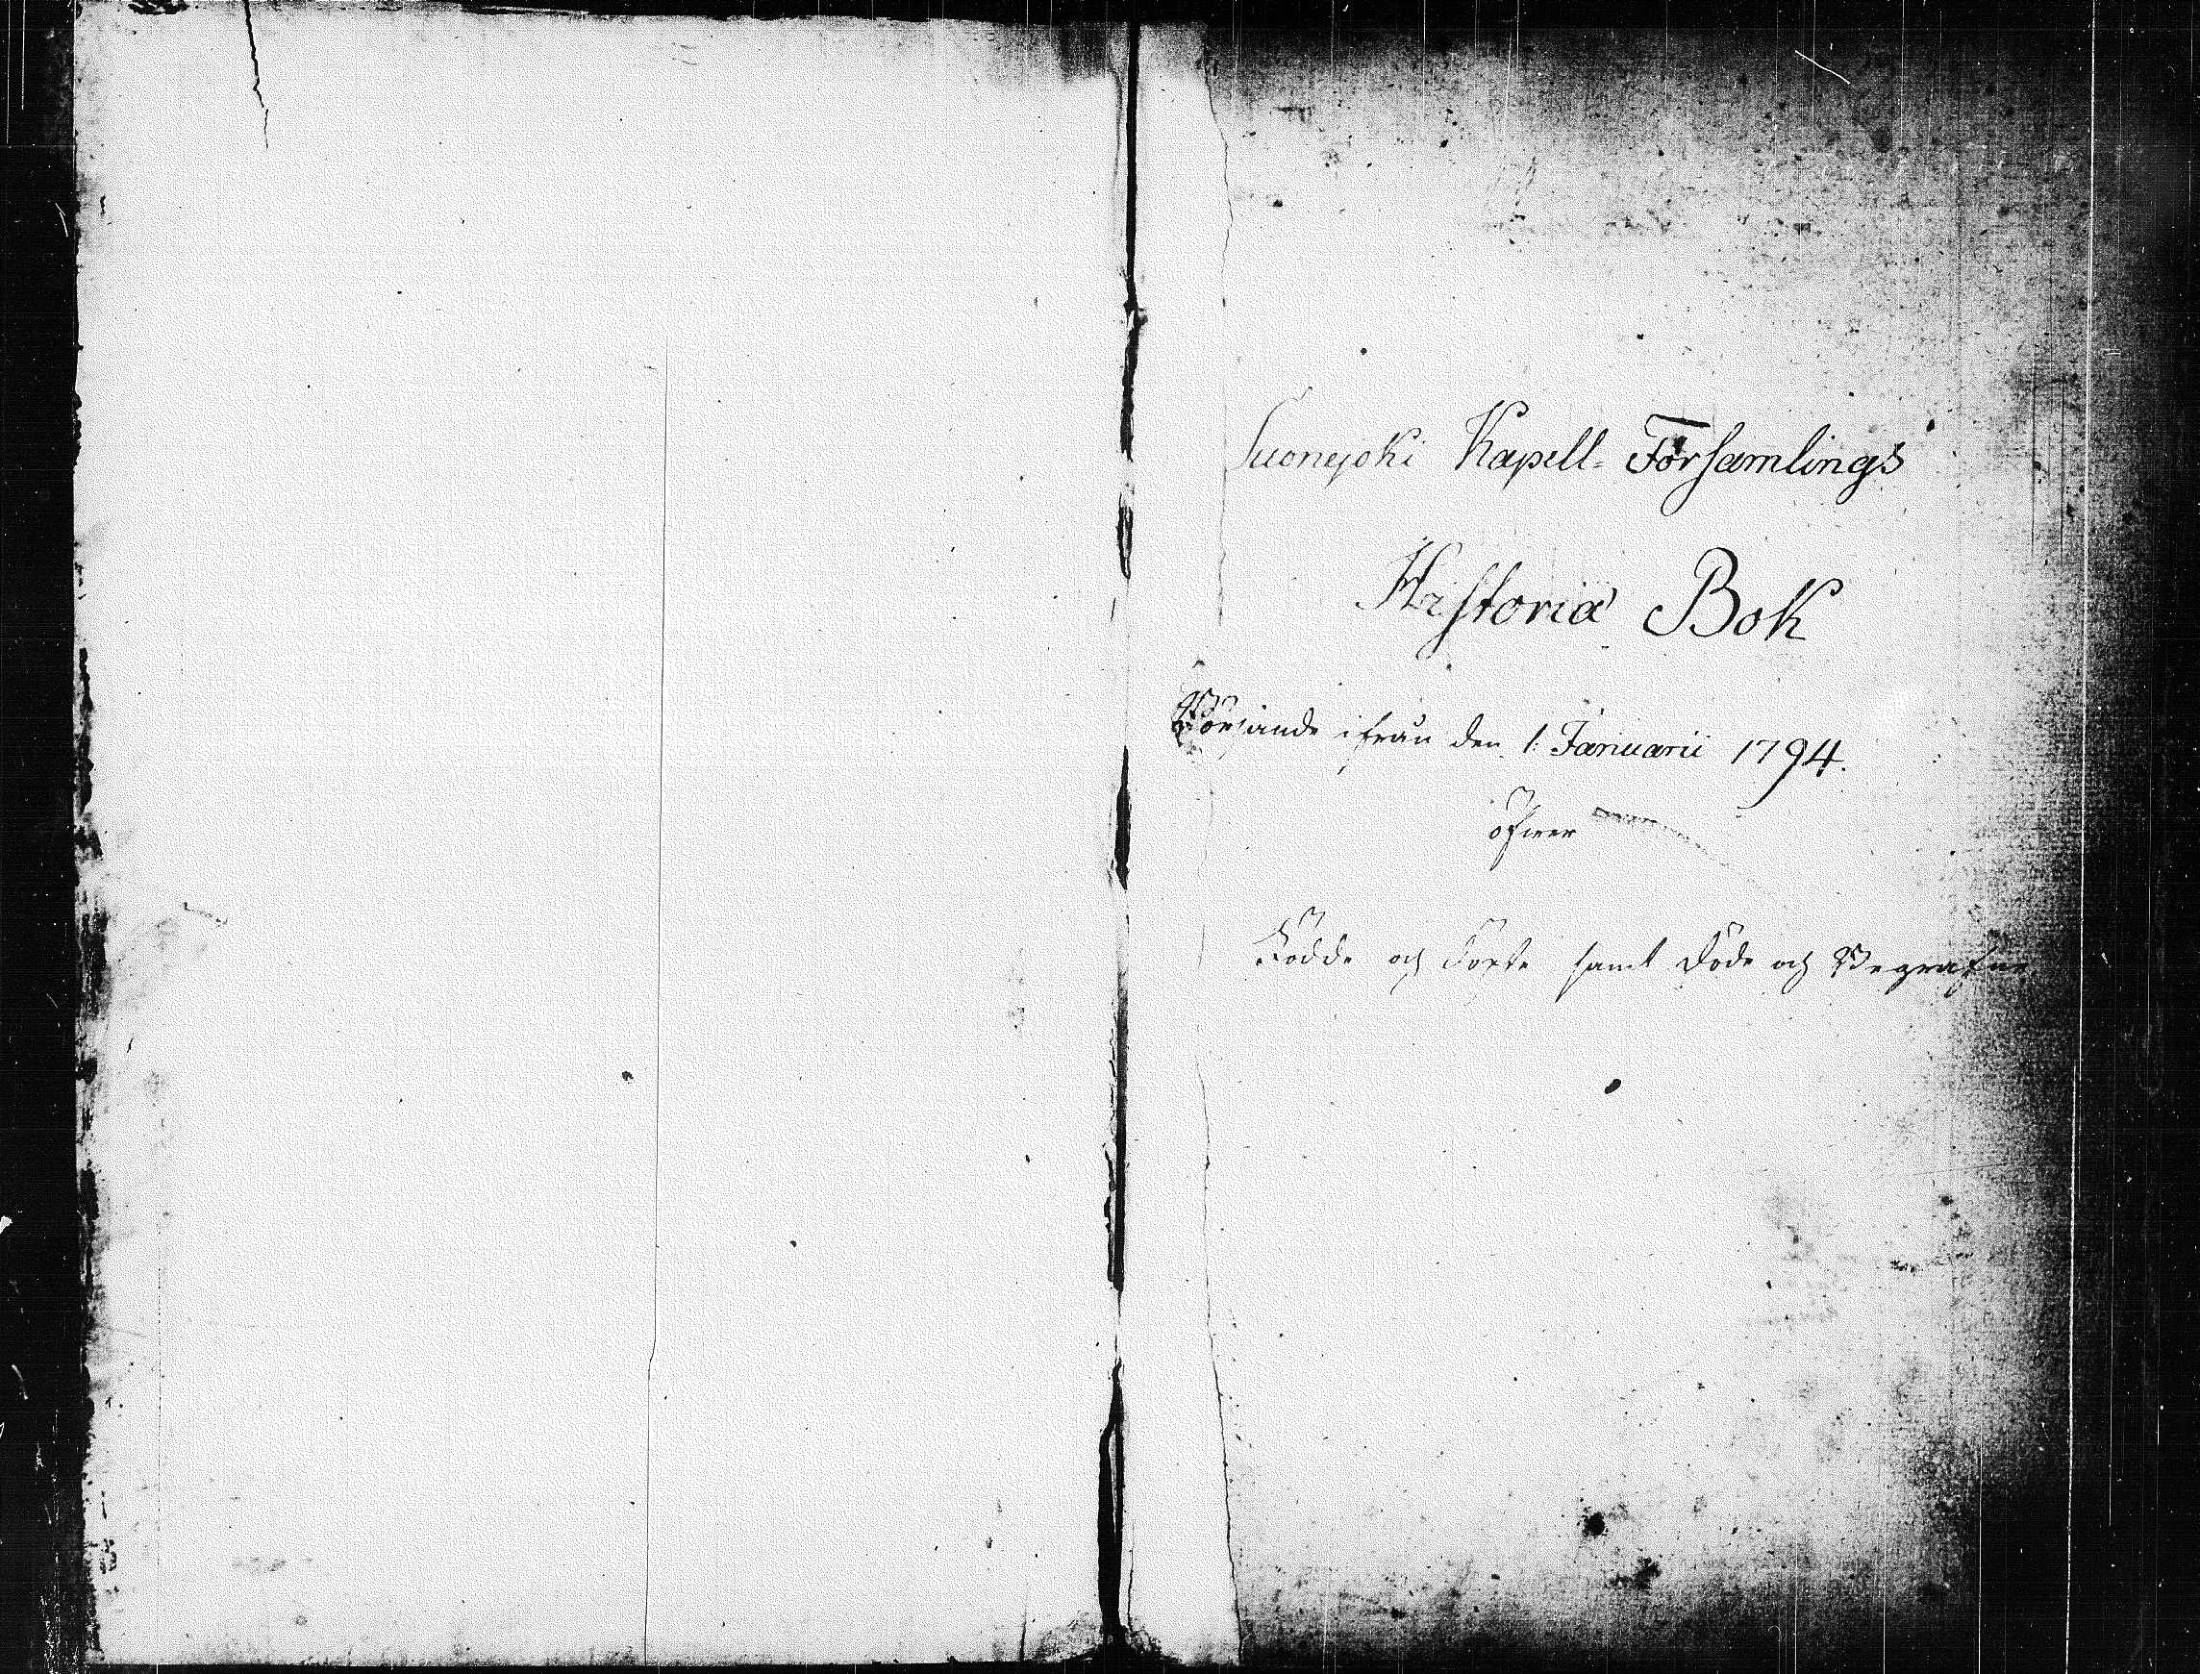 Suonejoki Kapell-Församlings
Historiæ Bok
Börjande ifrån den 1. Januarii 1794.
öfwer
Födde och Döpte samt Döde och Begrafne